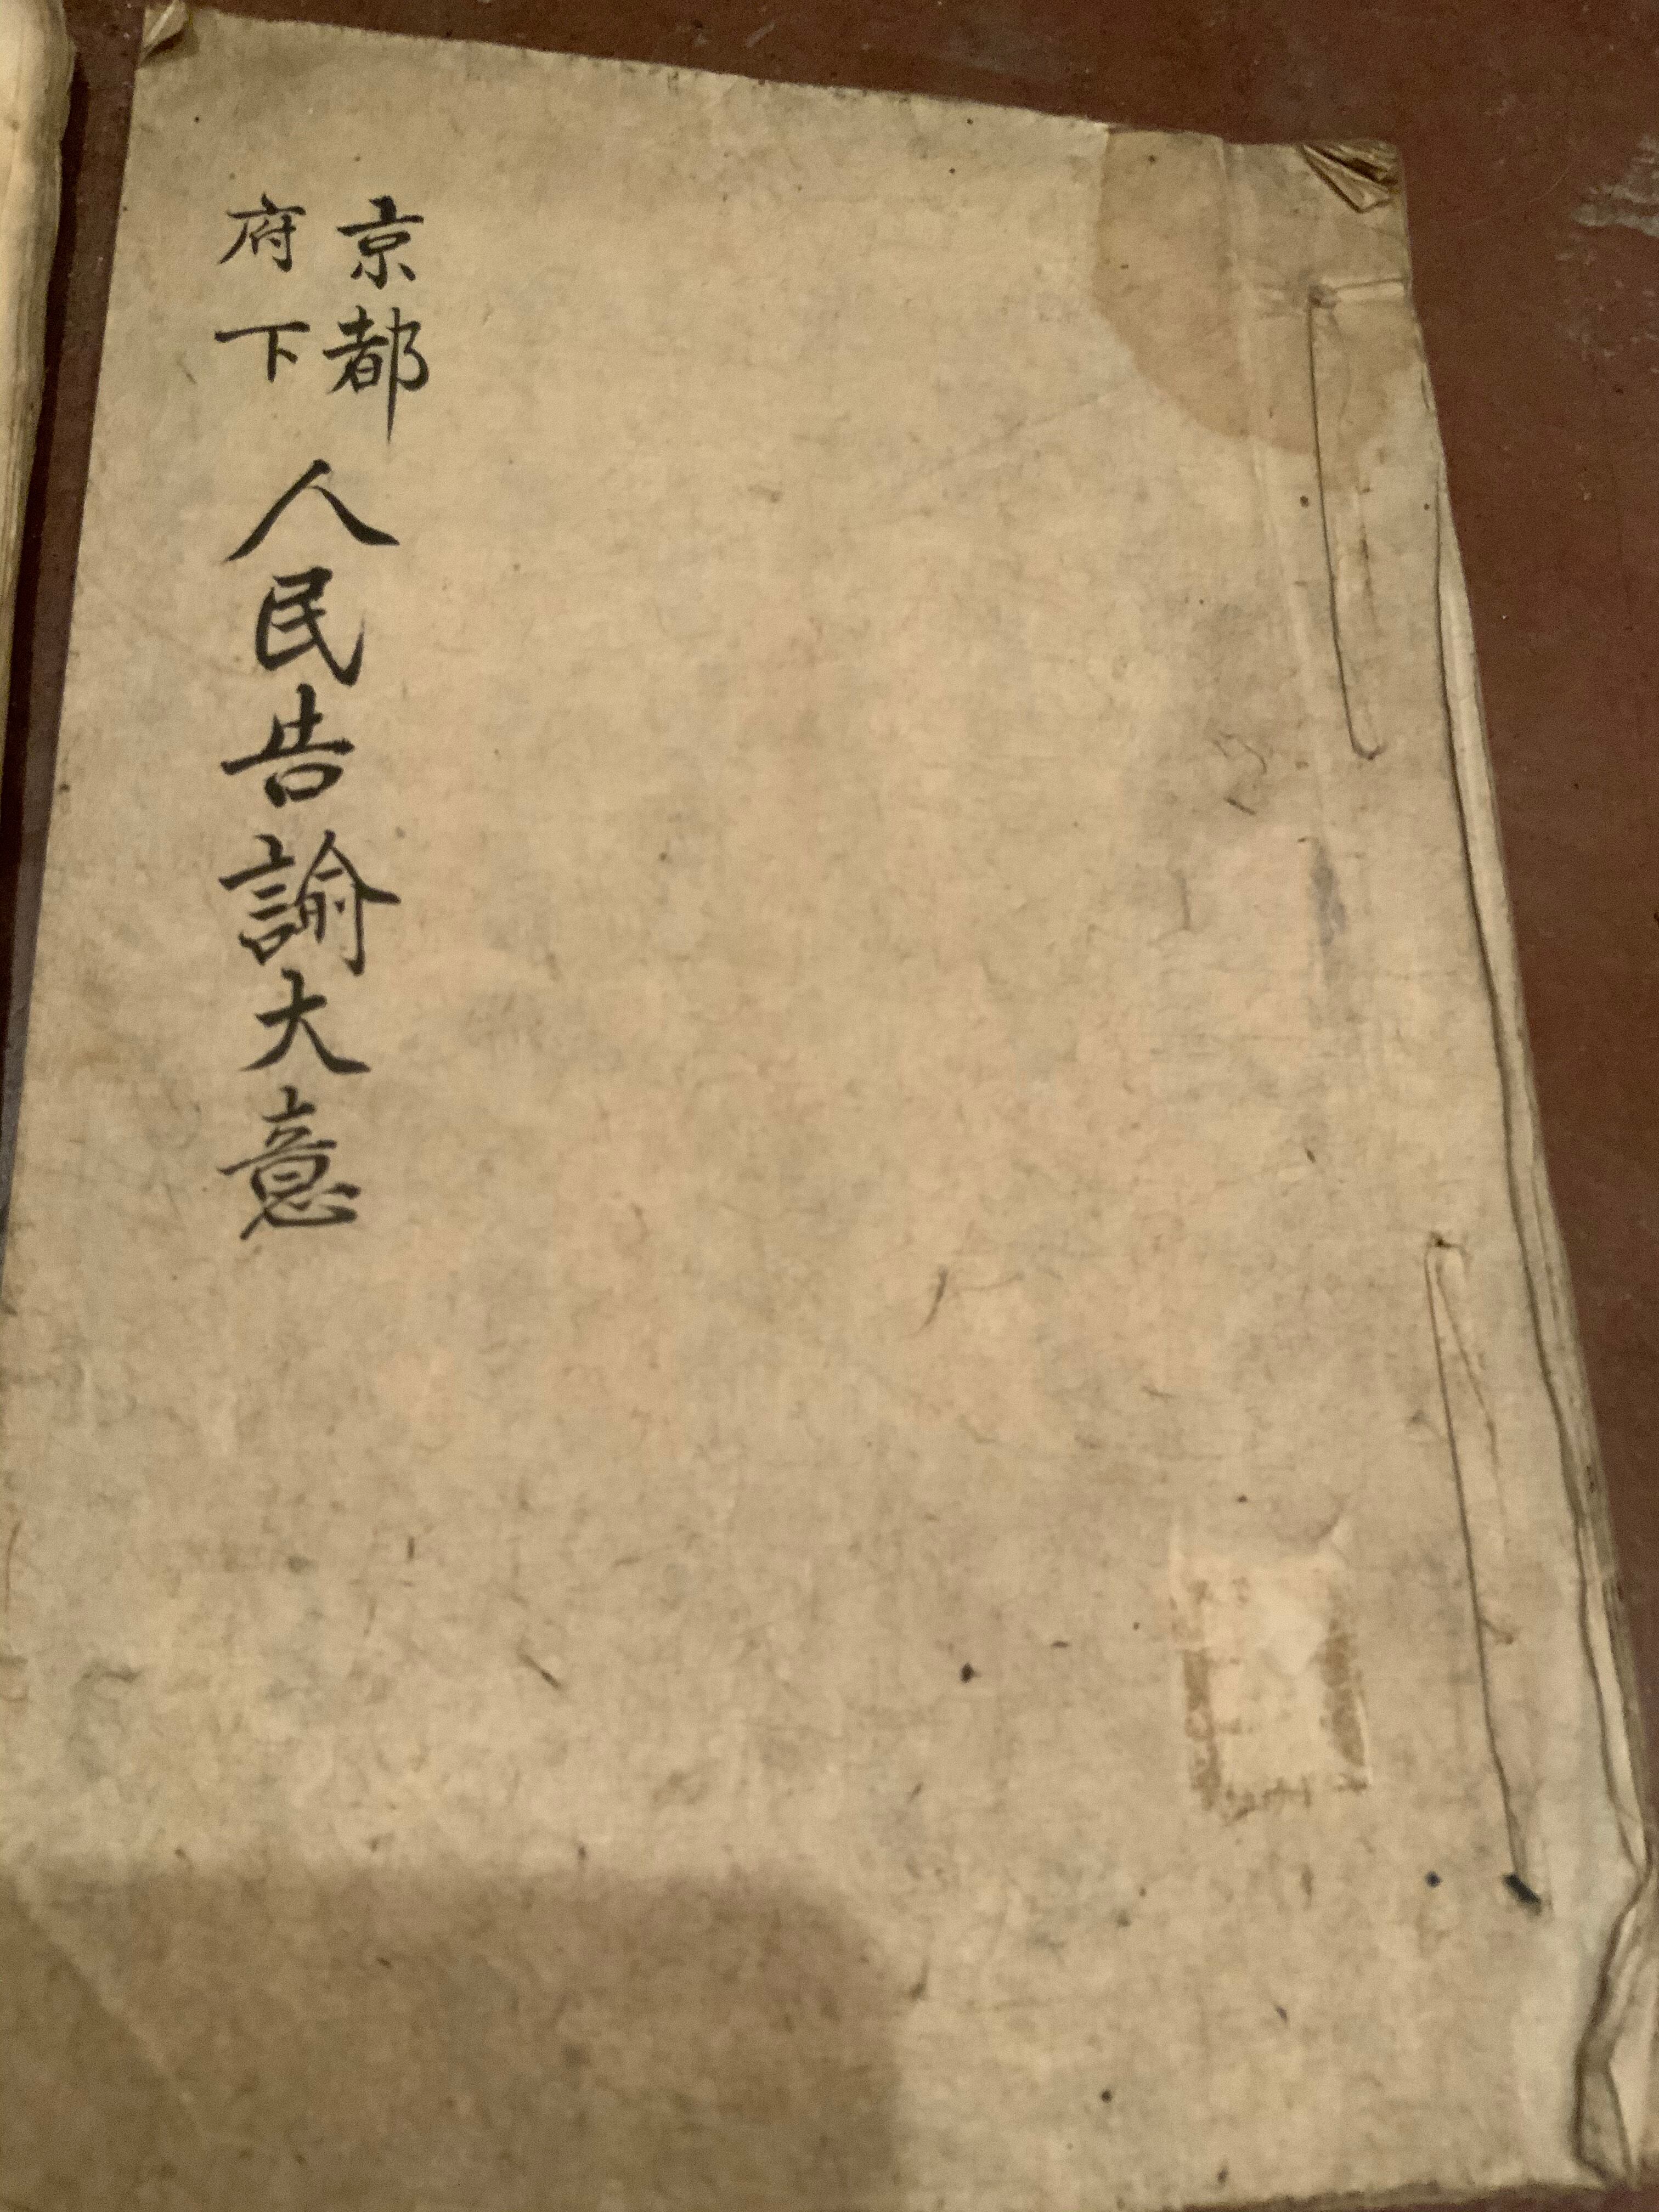 京都
府下
人民告諭大意